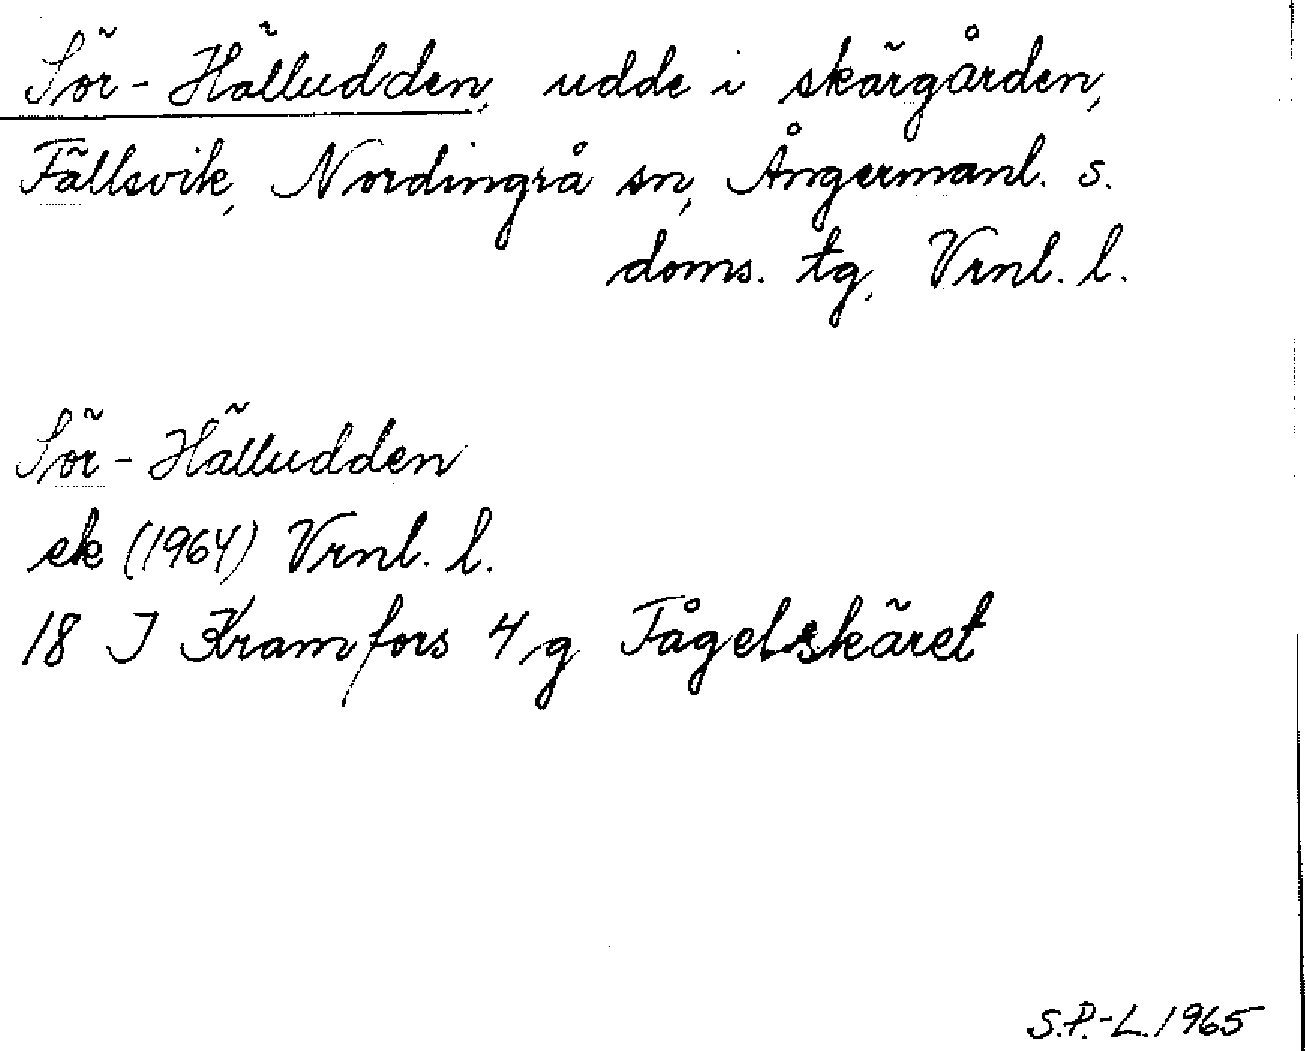 Sör-Hälludden, udde i skärgården,
Fällsvik, Nordingrå sn, Ångermanl. s.
doms. tg, Vrnl. l.
Sör-Hälludden
ek (1964) Vrnl. l.
18 I Kramfors 4 g Fågelskäret
S.P.-L. 1965